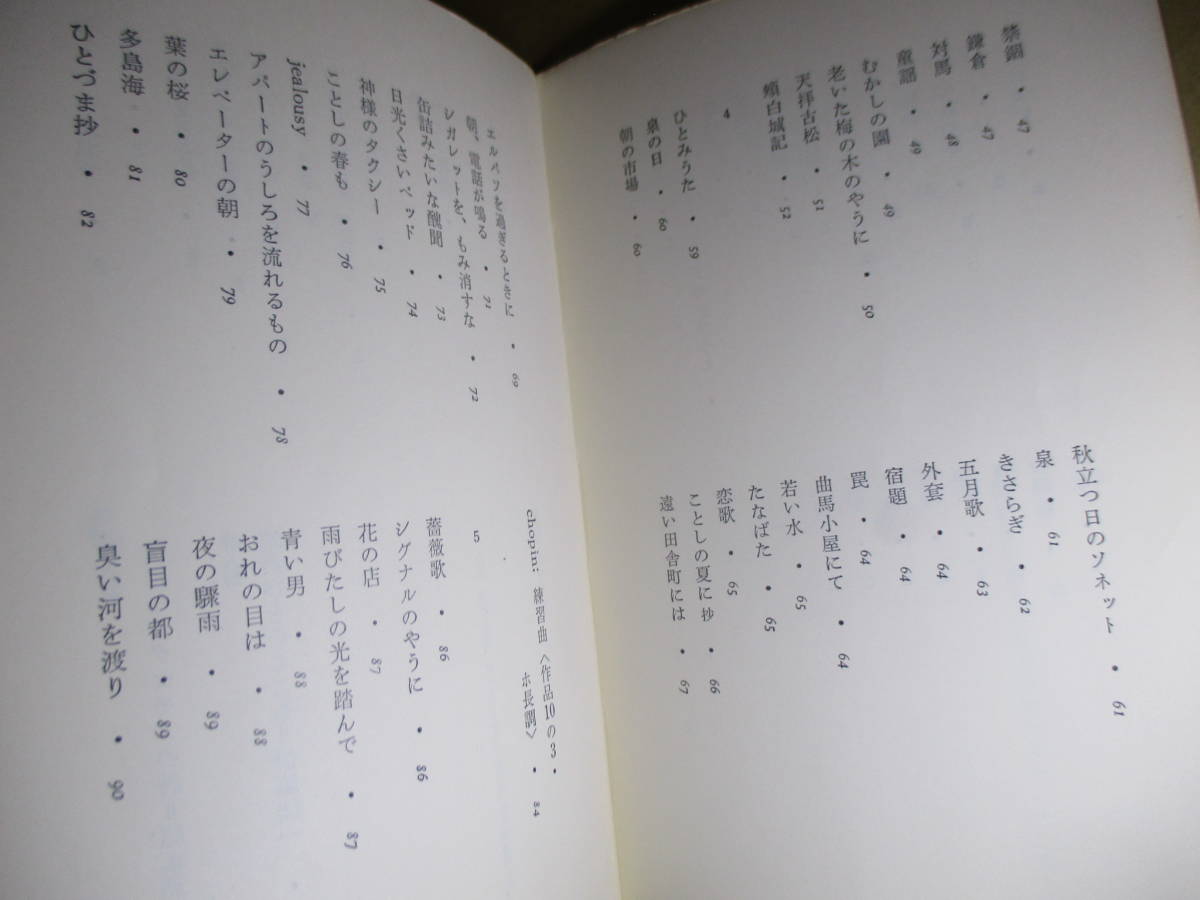 禁錮・47
鎌倉・47
対馬・48
童謡・49
むかしの園・49
老いた梅の木のやうに・50
天拝古松・51
蠙白城記・52
4
ひとみうた・59
泉の日・60
朝の市場・60
秋立つ日のソネット・61
泉・61
きさらぎ・62
五月歌・63
外套・64
宿題・64
罠・64
曲馬小屋にて・64
若い水・65
たなばた・65
恋歌・65
ことしの夏に 抄・66
遠い田舎町には・67
エルパソを過ぎるときに・69
朝、電話が鳴る・71
シガレットを、もみ消すな・72
缶詰みたいな醜聞・73
日光くさいベッド・74
神様のタクシー・75
ことしの春も・76
jealousy・77
アパートのうしろを流れるもの・78
エレベーターの朝・79
葉の桜・80
多島海・81
ひとづま抄・82
chopin; 練習曲〈作品10の3・
ホ長調〉・84
5
薔薇歌・86
シグナルのやうに・86
花の店・87
雨びたしの光を踏んで・87
青い男・88
おれの目は・88
夜の驟雨・89
盲目の都・89
臭い河を渡り・90